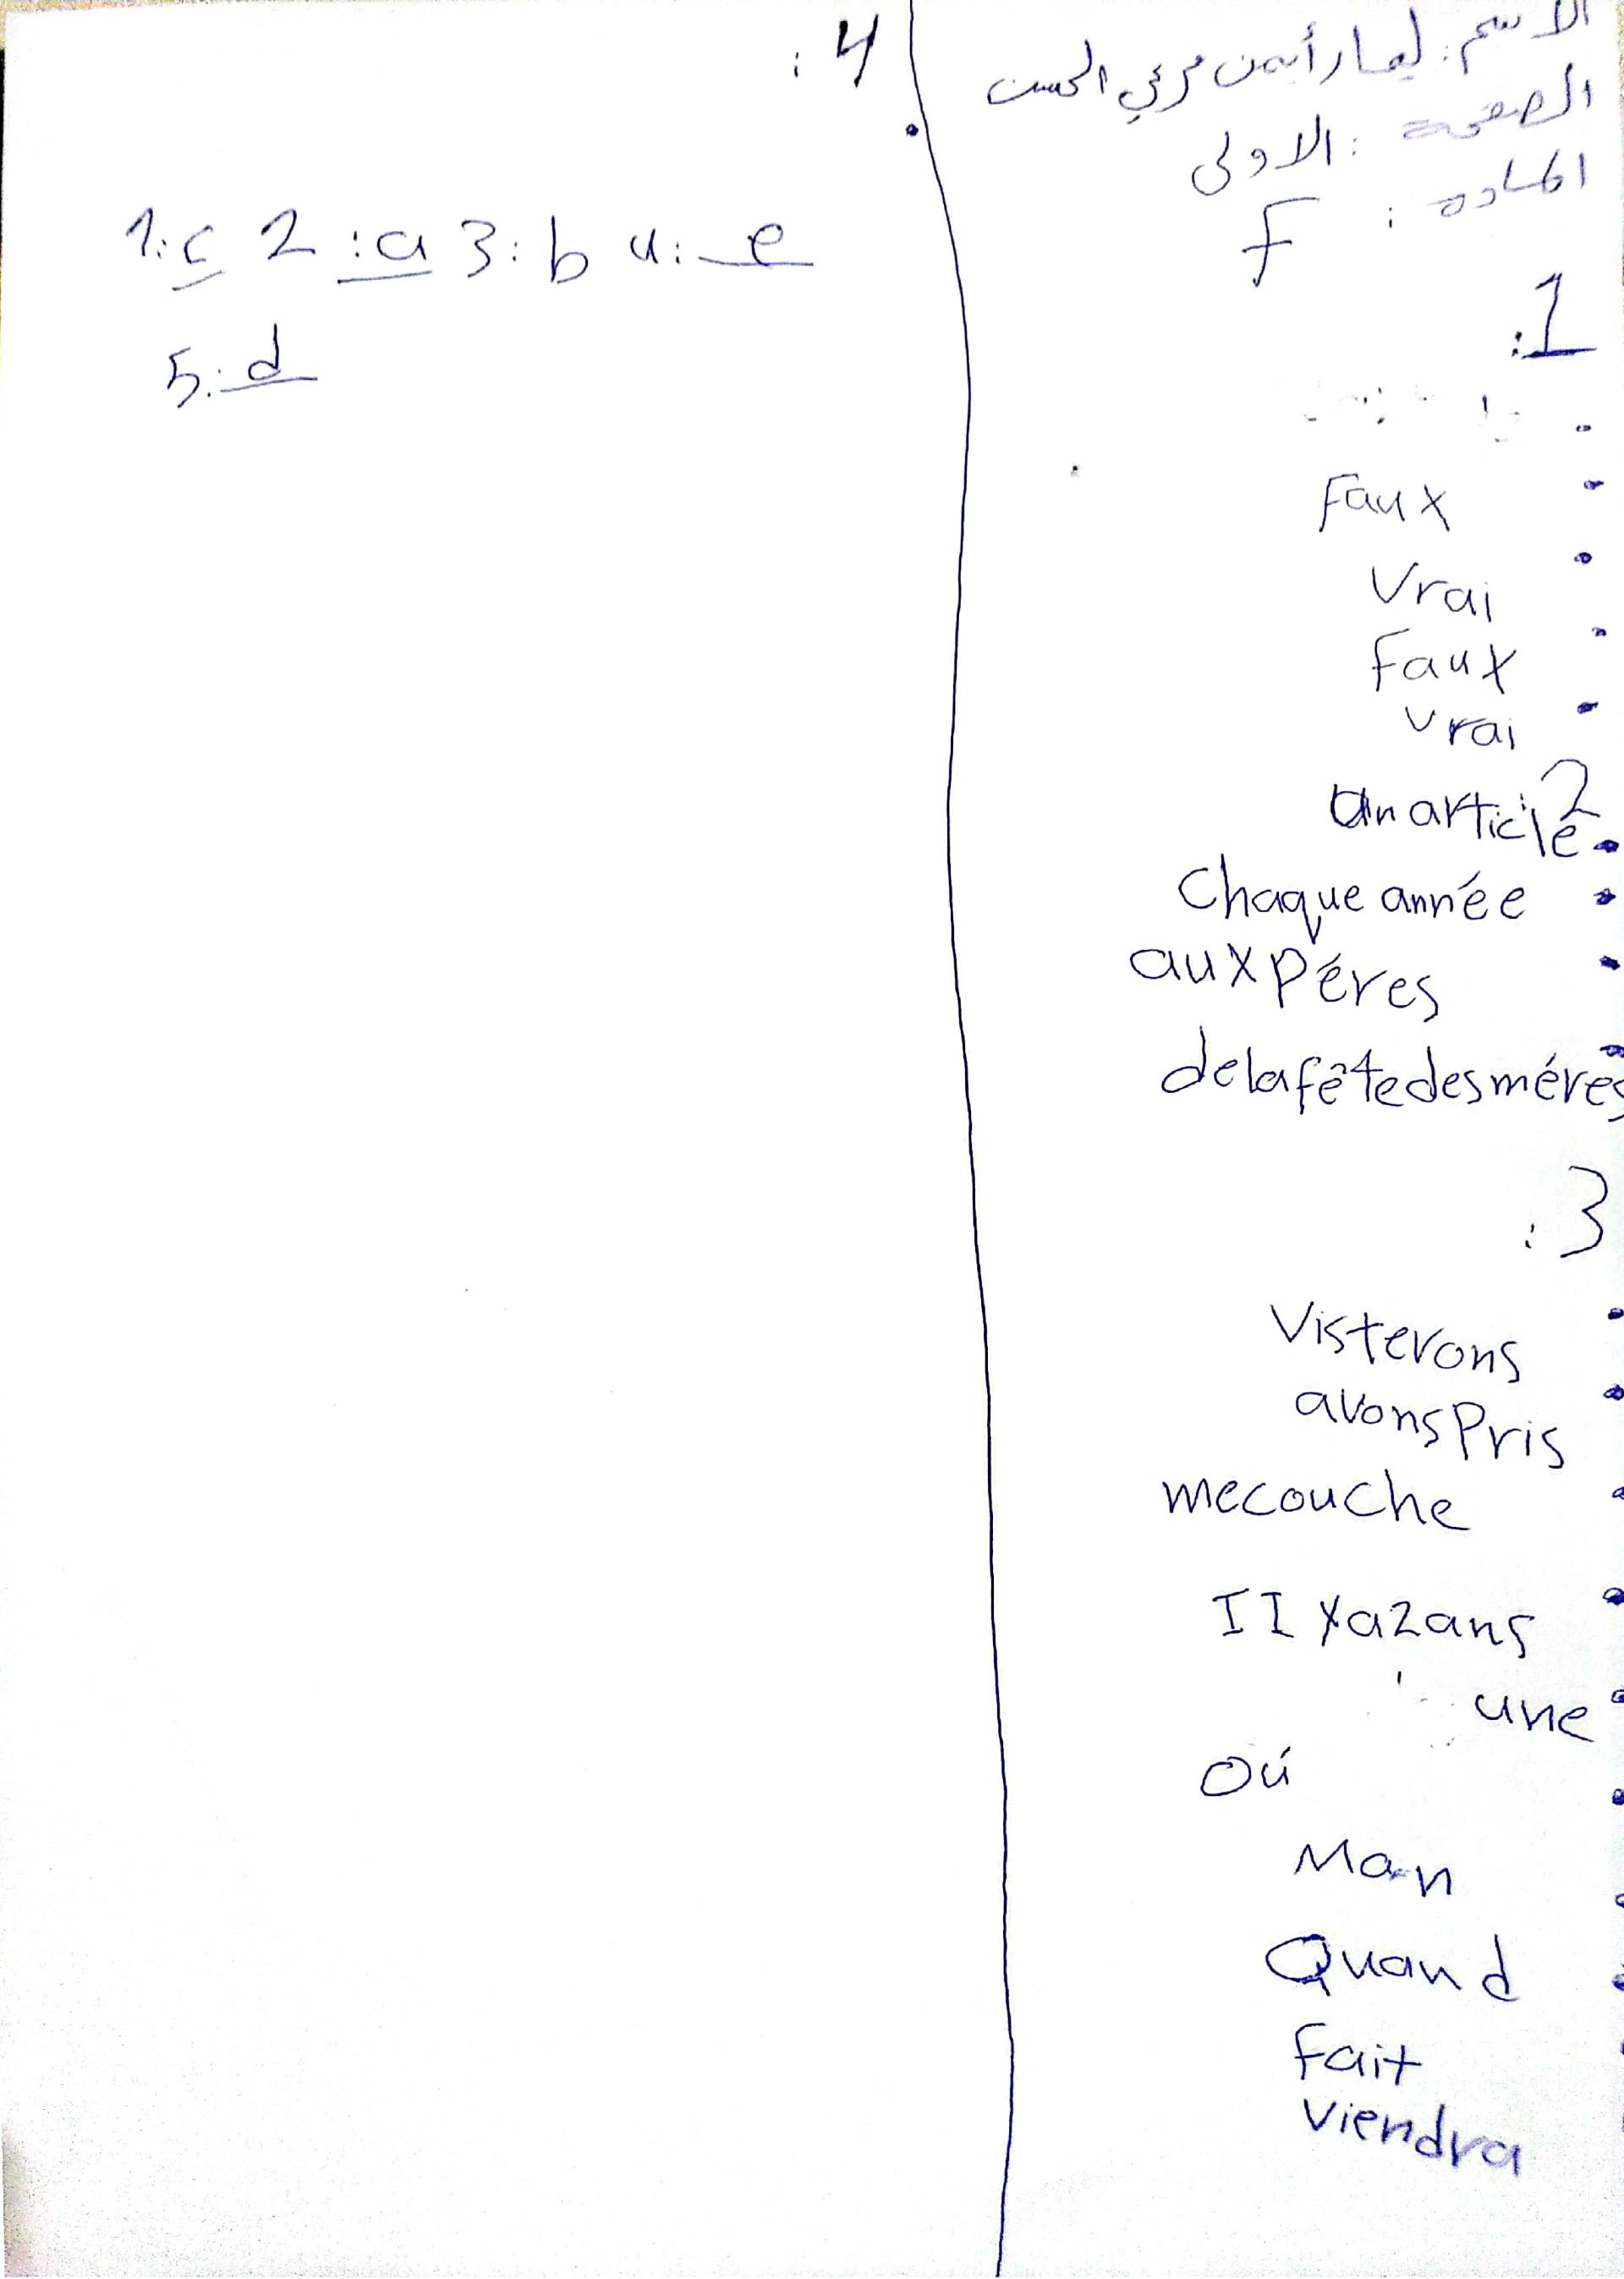 الاسم: ليمار أيمن مرعي الحسن
الصفحة: الاولى
المادة: F
1:
Faux
Vrai
Faux
vrai
2
Un article
Chaque année
aux Péres
de la fête des méres
3:
Visterons
avons Pris
me couche
II Ya 2 ans
une
Oú
Man
Quand
Fait
Viendra
4:
1: c 2: a 3: b 4: e
5: d